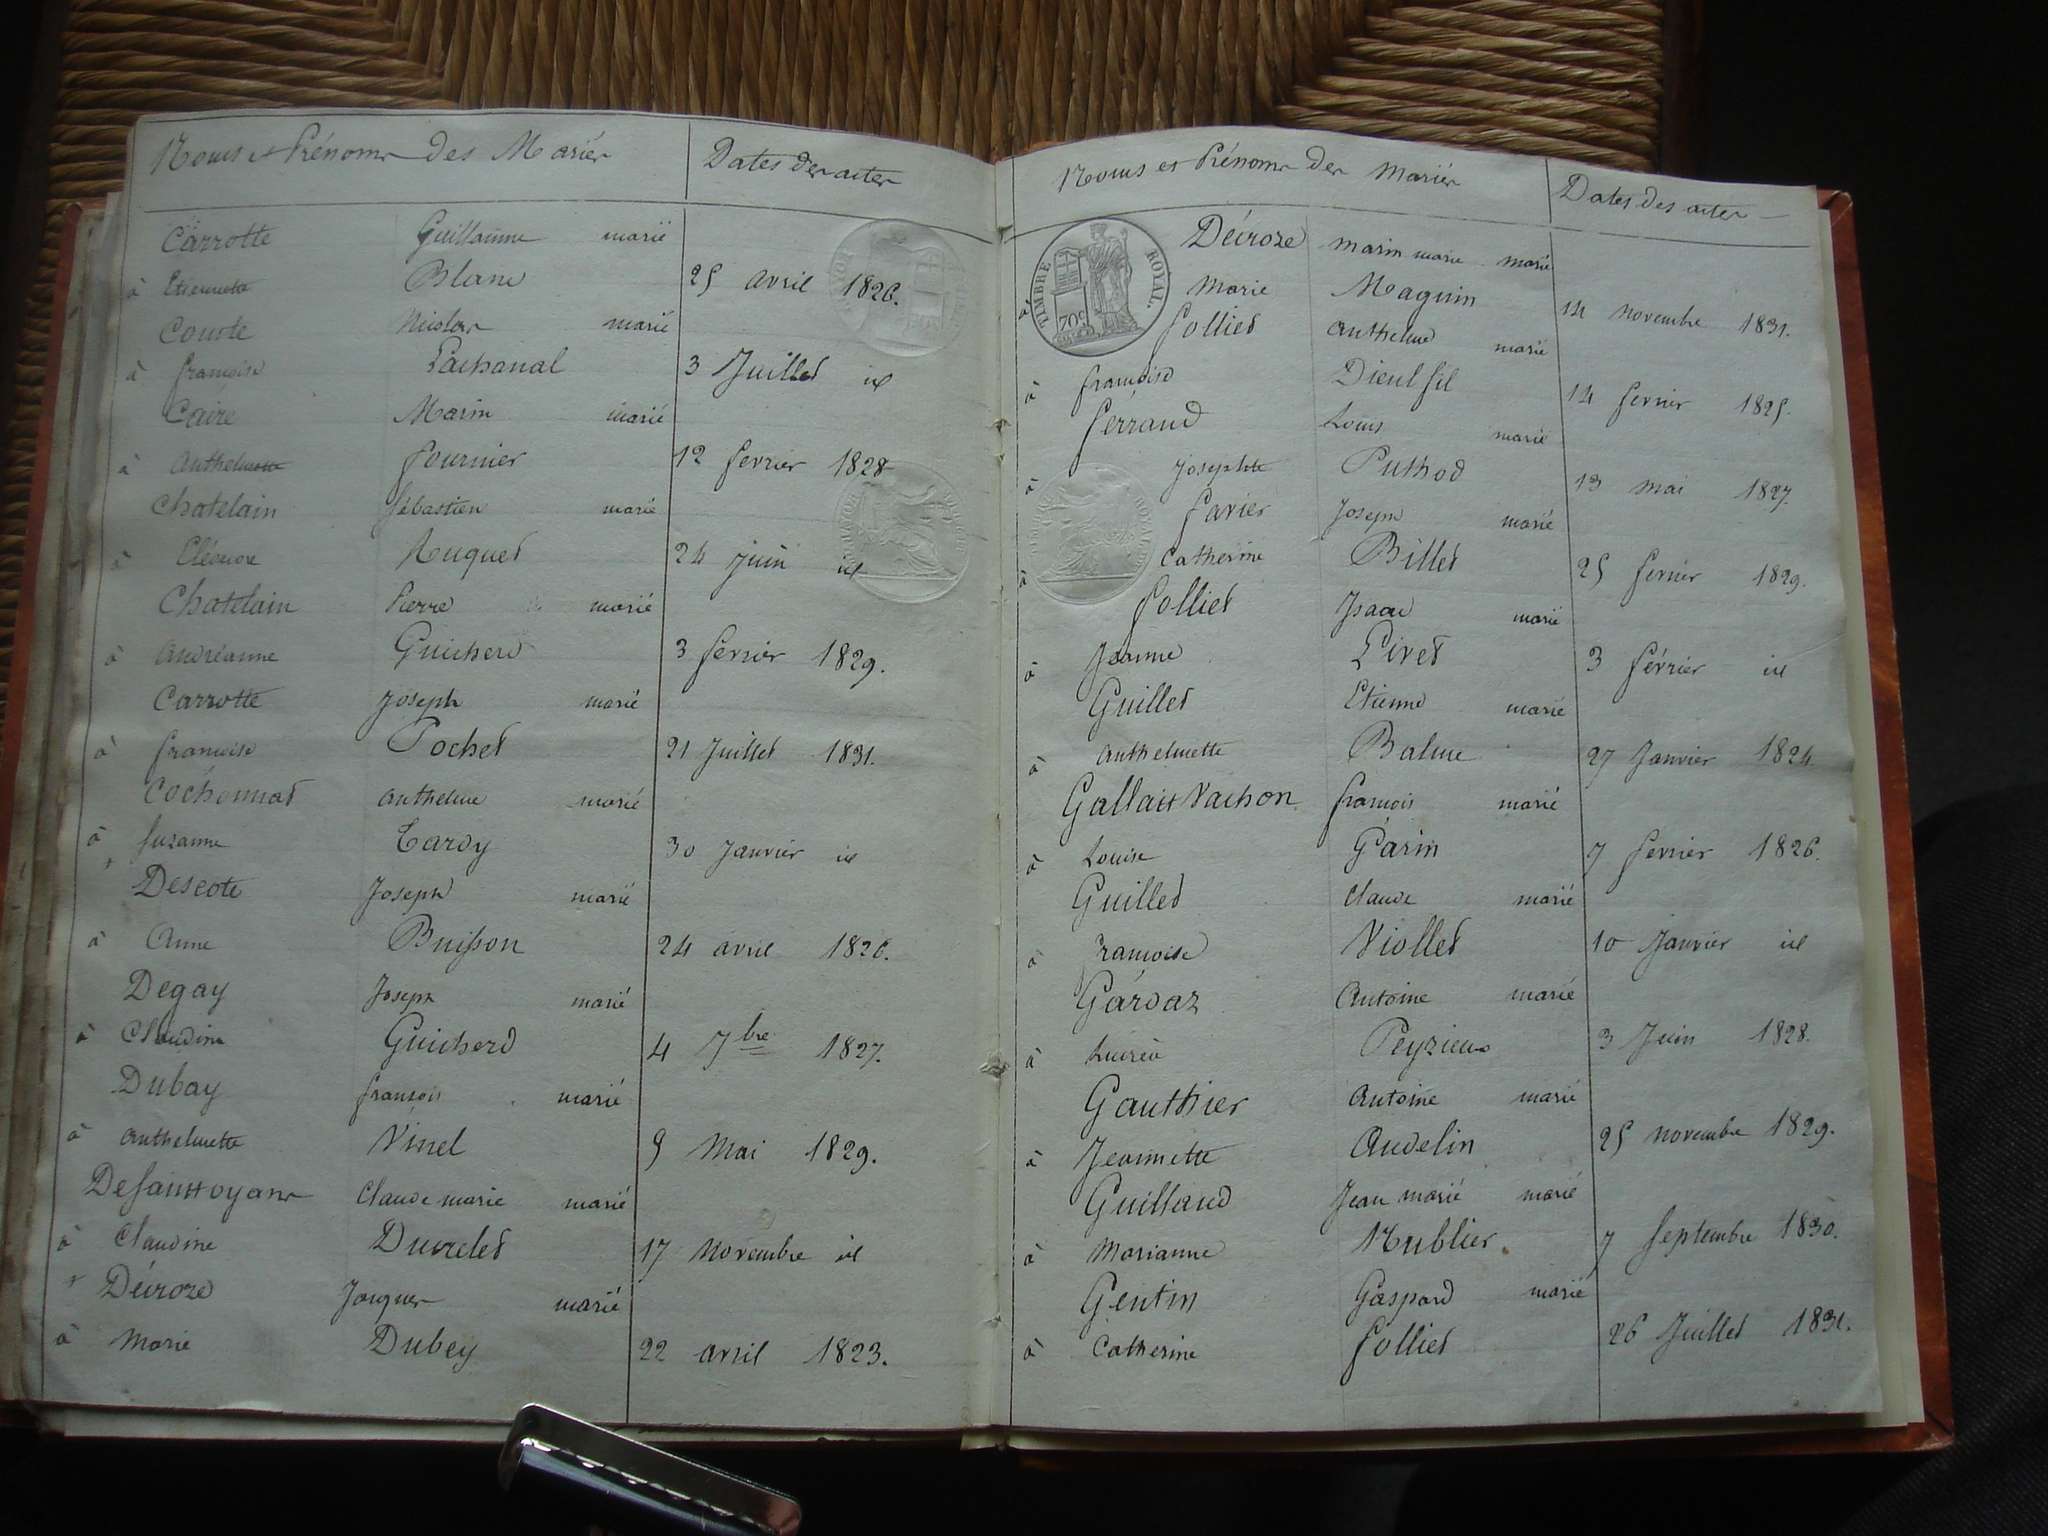 Noms et Prénoms des Mariés
Dates des actes
Carrotte Guillaume marié
à Etiennette Blanc 25 avril 1826.
Courte Nicolas marié
à françoise Pachanal 3 Juillet id
Caire Marin marié
à anthelmette fournier 12 fevrier 1828
Chatelain Sébastien marié
à Cléonore Ruquet 24 Juin id
Chatelain Pierre marié
à andréanne Guicherd 3 fevrier 1829.
Carrotte Joseph marié
à françoise Pochet 21 Juillet 1831.
Cochonnat anthelme marié
à Suzanne Tardy 30 Janvier id
Descote Joseph marié
à Anne Buisson 24 avril 1826.
Degay Joseph marié
à Claudine Guicherd 4 7bre 1827.
Dubay françois marié
à anthelmette Vinel 9 Mai 1829.
Desaintoyans Claude marie marié
à Claudine Ducrelet 17 Novembre id
Décroze Jacques marié
à Marie Dubey 22 avril 1823.
Noms et Prénoms des Mariés
Dates des actes
TIMBRE ROYAL.
70c
Décroze marin marie marié
à Marie Maguin 14 Novembre 1831.
folliet anthelme marié
à françoise Dieulfil 14 fevrier 1825.
ferrand Louis marié
à Josephte Puthod 13 Mai 1827.
favier Joseph marié
à Catherine Billet 25 fevrier 1829.
folliet Isaac marié
à Jeanne Pivet 3 février id
Guillet Etienne marié
à anthelmette Balme 27 Janvier 1824.
Gallait Vachon françois marié
à Louise Garin 7 fevrier 1826.
Guillet Claude marié
à françoise Viollet 10 Janvier id
Gardaz Antoine marié
à Lucrèce Peyzieux 3 Juin 1828.
Gauthier Antoine marié
à Jeannette Audelin 25 Novembre 1829.
Guilland Jean marié marié
à Marianne Nublier. 7 Septembre 1830.
Gentin Gaspard marié
à Catherine folliet 26 Juillet 1831.